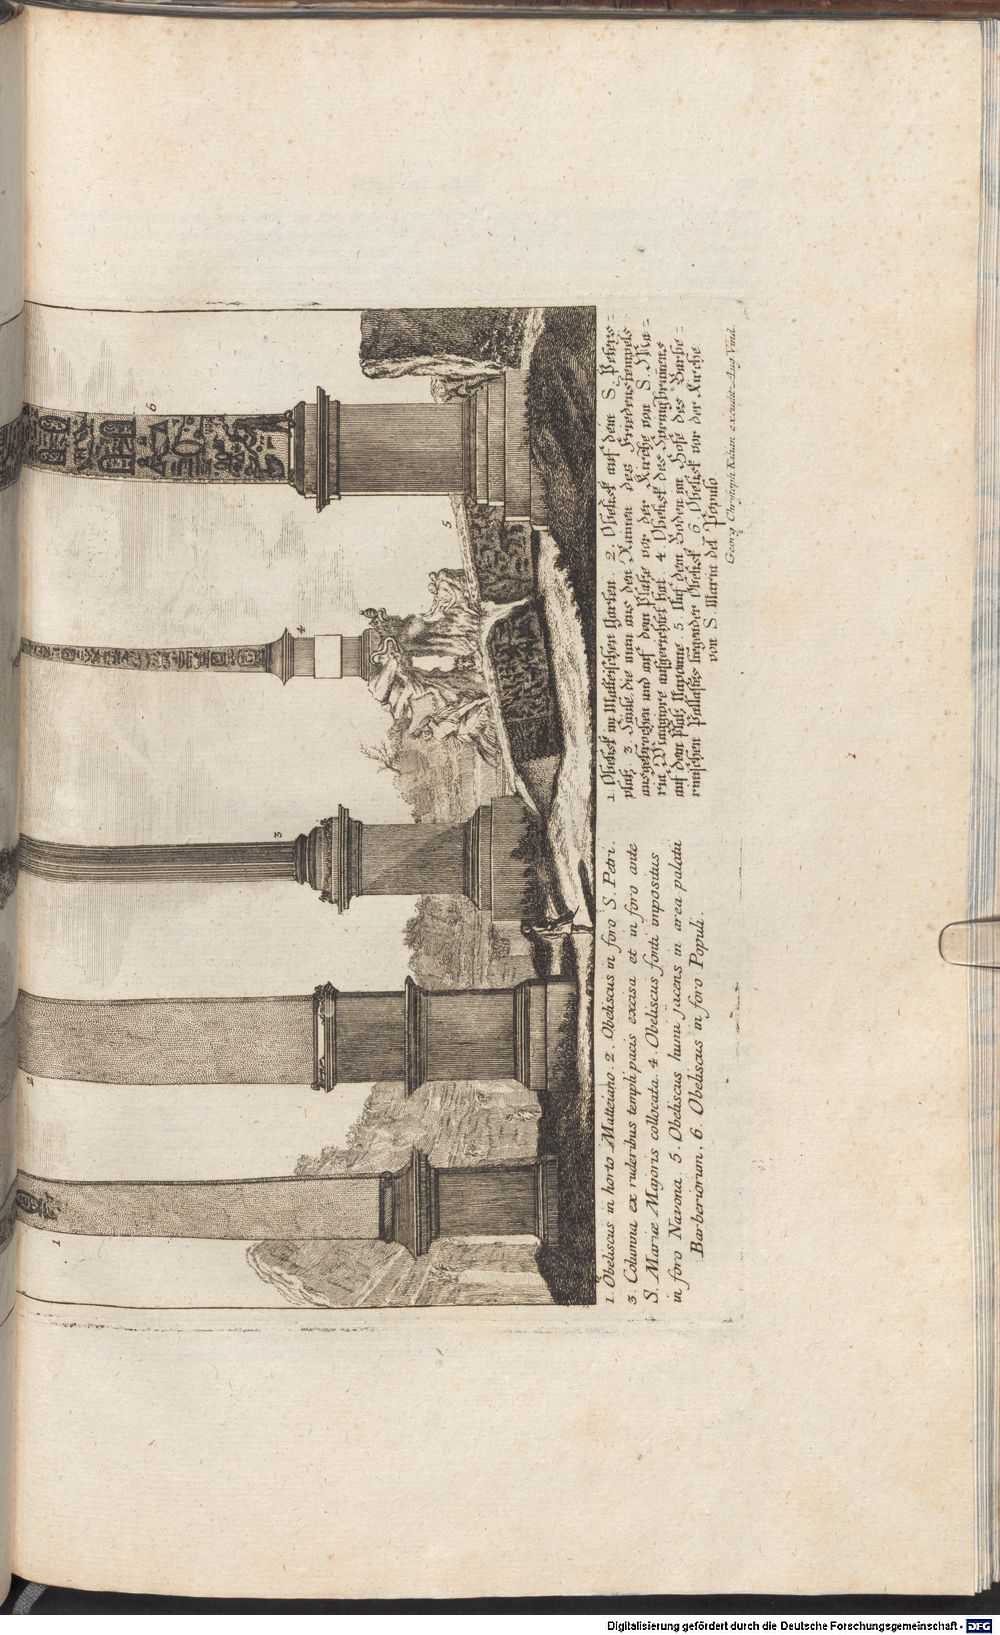 1. Obeliscus in horto Matteiano. 2. Obeliscus in foro S. Petri.
3. Columna ex ruderibus templi pacis excisa et in foro ante
S. Mariæ Magoris collocata. 4. Obeliscus fonti impositus
in foro Navona. 5. Obeliscus humi jacens in area palatii
Barberiorum. 6. Obeliscus in foro Populi.
1. Obelisk im Matteischen Garten 2. Obelisk auf dem S. Peters=
platz 3. Säule, die man aus den Ruinen des Friedenstempels
ausgebrochen und auf dem Platze vor der Kirche von S. Ma=
ria Maggiore aufgerichtet hat. 4. Obelisk des Springbrunens
auf dem Platz Navonne 5. Auf dem Boden im Hofe des Barbe=
rinischen Pallastes liegender Obelisk 6. Obelisk vor der Kirche
von S. Maria del Popolo
Georg Christoph Kilian excudit Aug. Vind.
1
2
3
4
5
6
Digitalisierung gefördert durch die Deutsche Forschungsgemeinschaft - DFG